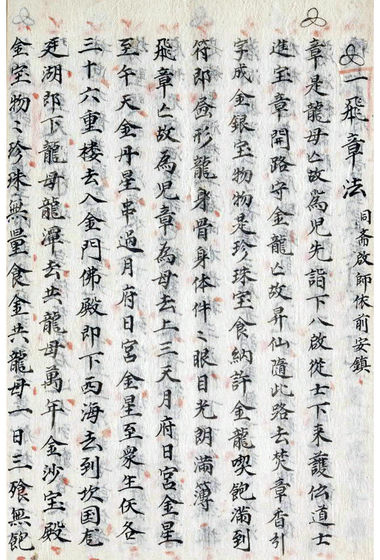 一飛章法 同斋啟師依前安鎮
章是龍母亡故為児先詣下八啟從士下来護伝道士
進玉章開路字金龍亡故昇仙隨此路去焚章香引
字成金銀玉物物是珍珠宝食納許金龍喫飽滿到
符郎昼形龍身骨身体件〻眼目光朗滿簿
飛章亡故為児章為母去上三天月府日宮金星
至午天金丹星串過月府日宮金星至衆生仸各
三十六重楼去入金門佛殿即下西海去到坎国
湖郎下龍母龍潭去共龍母萬年金沙宝殿
金宝物〻珍珠無量食金共龍母一日三飱無飽